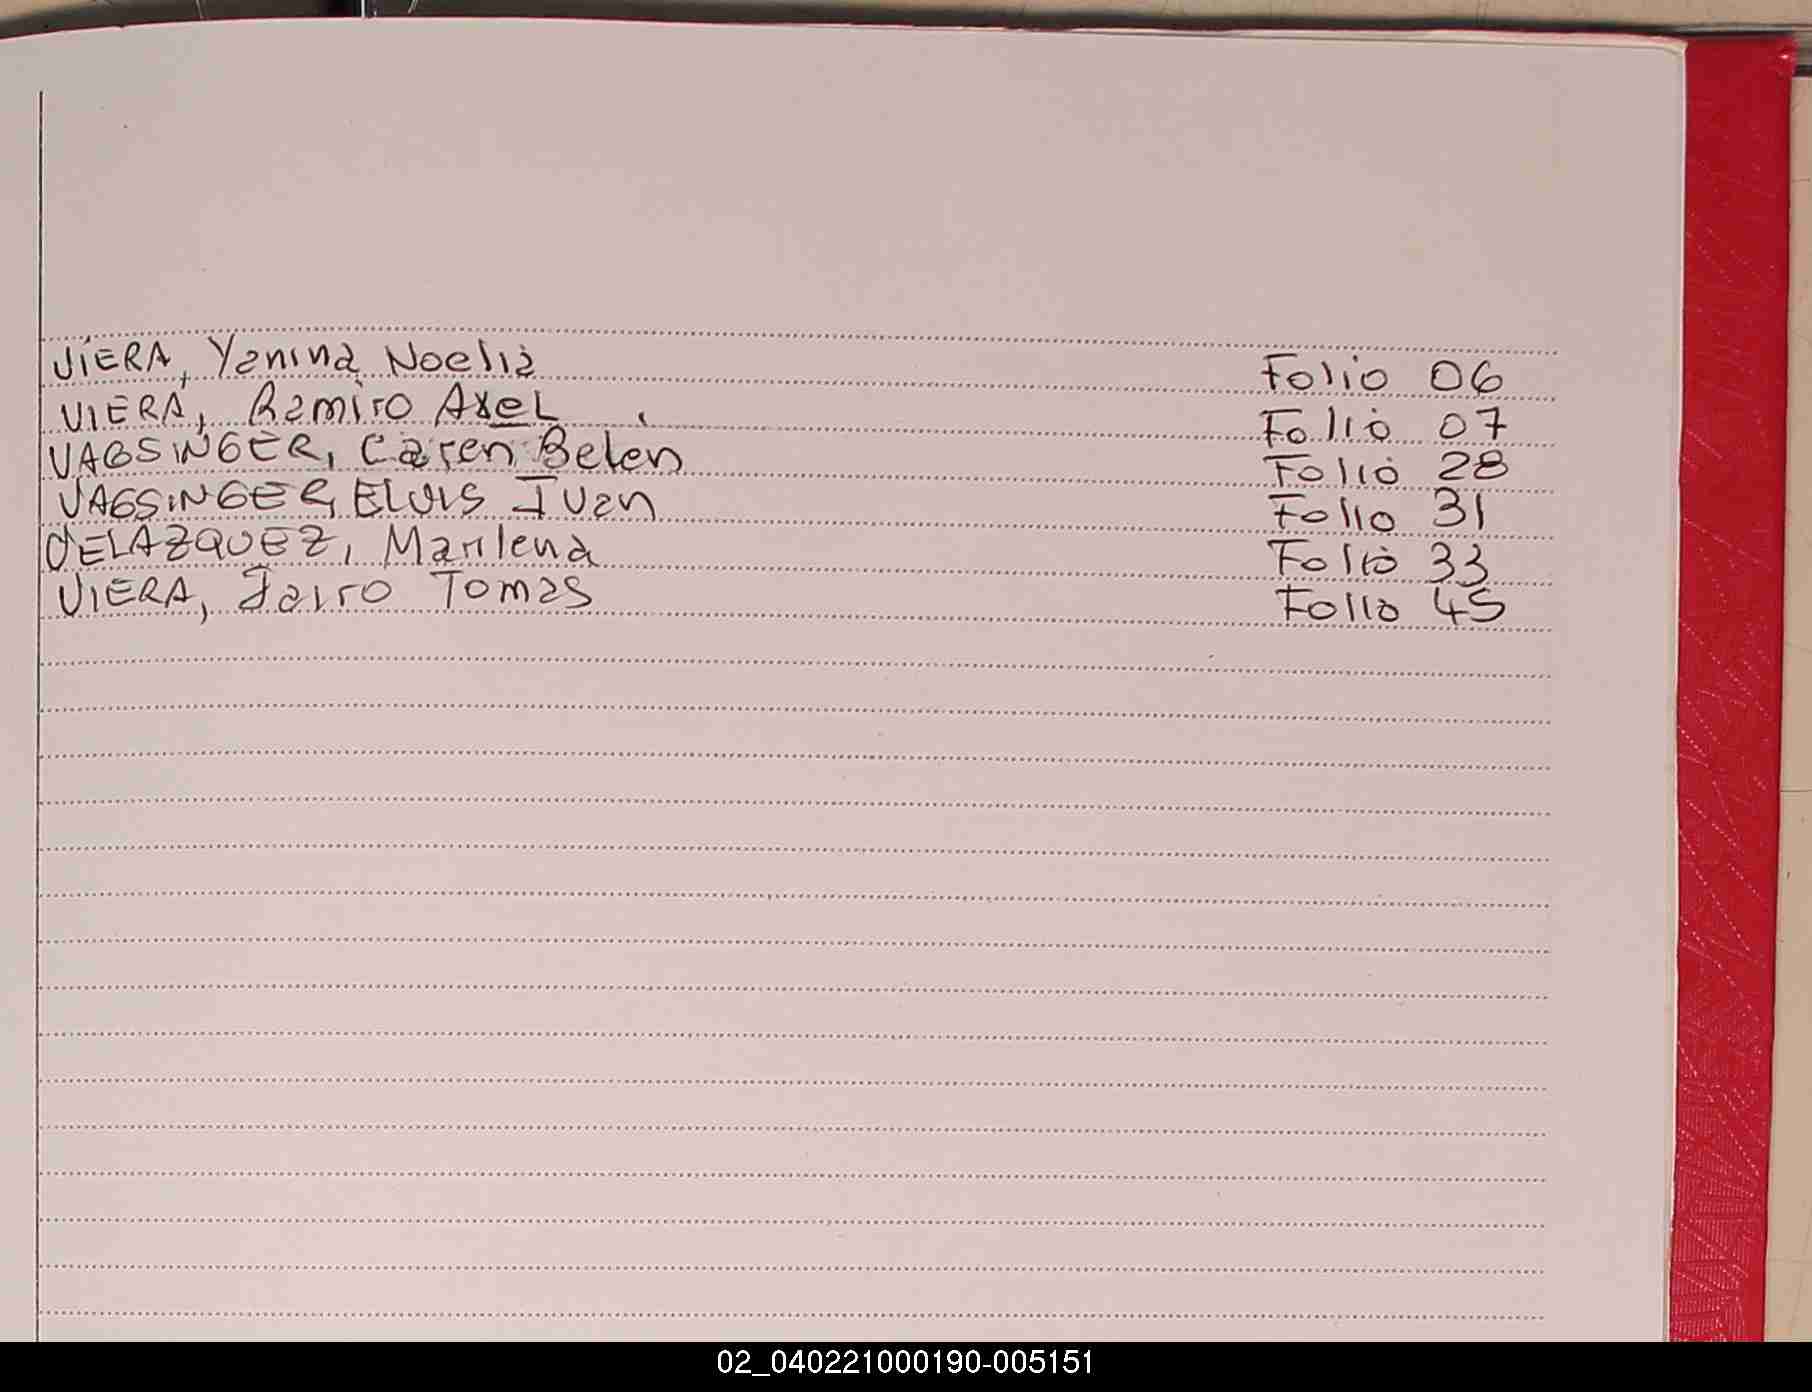 VIERA, Yanina Noelia Folio 06
VIERA, Ramiro Axel Folio 07
VAGSINGER, Caren Belen Folio 28
VAGSINGER, ELVIS Ivan Folio 31
VELAZQUEZ, Marilena Folio 33
VIERA, Jairo Tomas Folio 45
02_040221000190-005151